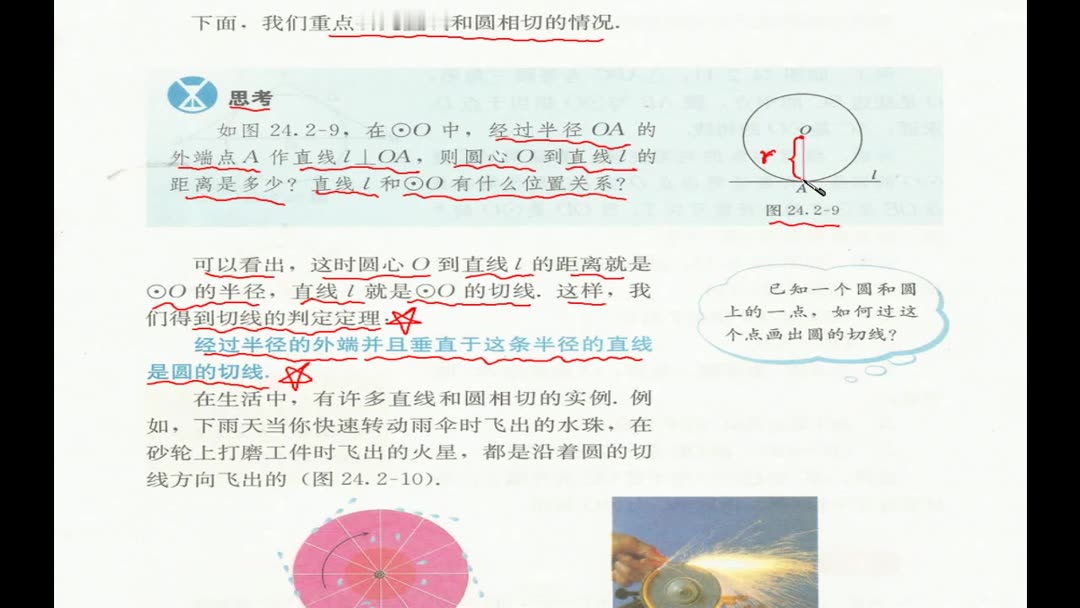 下面，我们重点和圆相切的情况.
思考
如图 24.2-9，在⊙O 中，经过半径 OA 的
外端点 A 作直线 l⊥OA，则圆心 O 到直线 l 的
距离是多少？直线 l 和⊙O 有什么位置关系？
O
r
l
A
图 24.2-9
可以看出，这时圆心 O 到直线 l 的距离就是
⊙O 的半径，直线 l 就是⊙O 的切线. 这样，我
们得到切线的判定定理：
经过半径的外端并且垂直于这条半径的直线
是圆的切线.
已知一个圆和圆
上的一点，如何过这
个点画出圆的切线？
在生活中，有许多直线和圆相切的实例. 例
如，下雨天当你快速转动雨伞时飞出的水珠，在
砂轮上打磨工件时飞出的火星，都是沿着圆的切
线方向飞出的（图 24.2-10）.